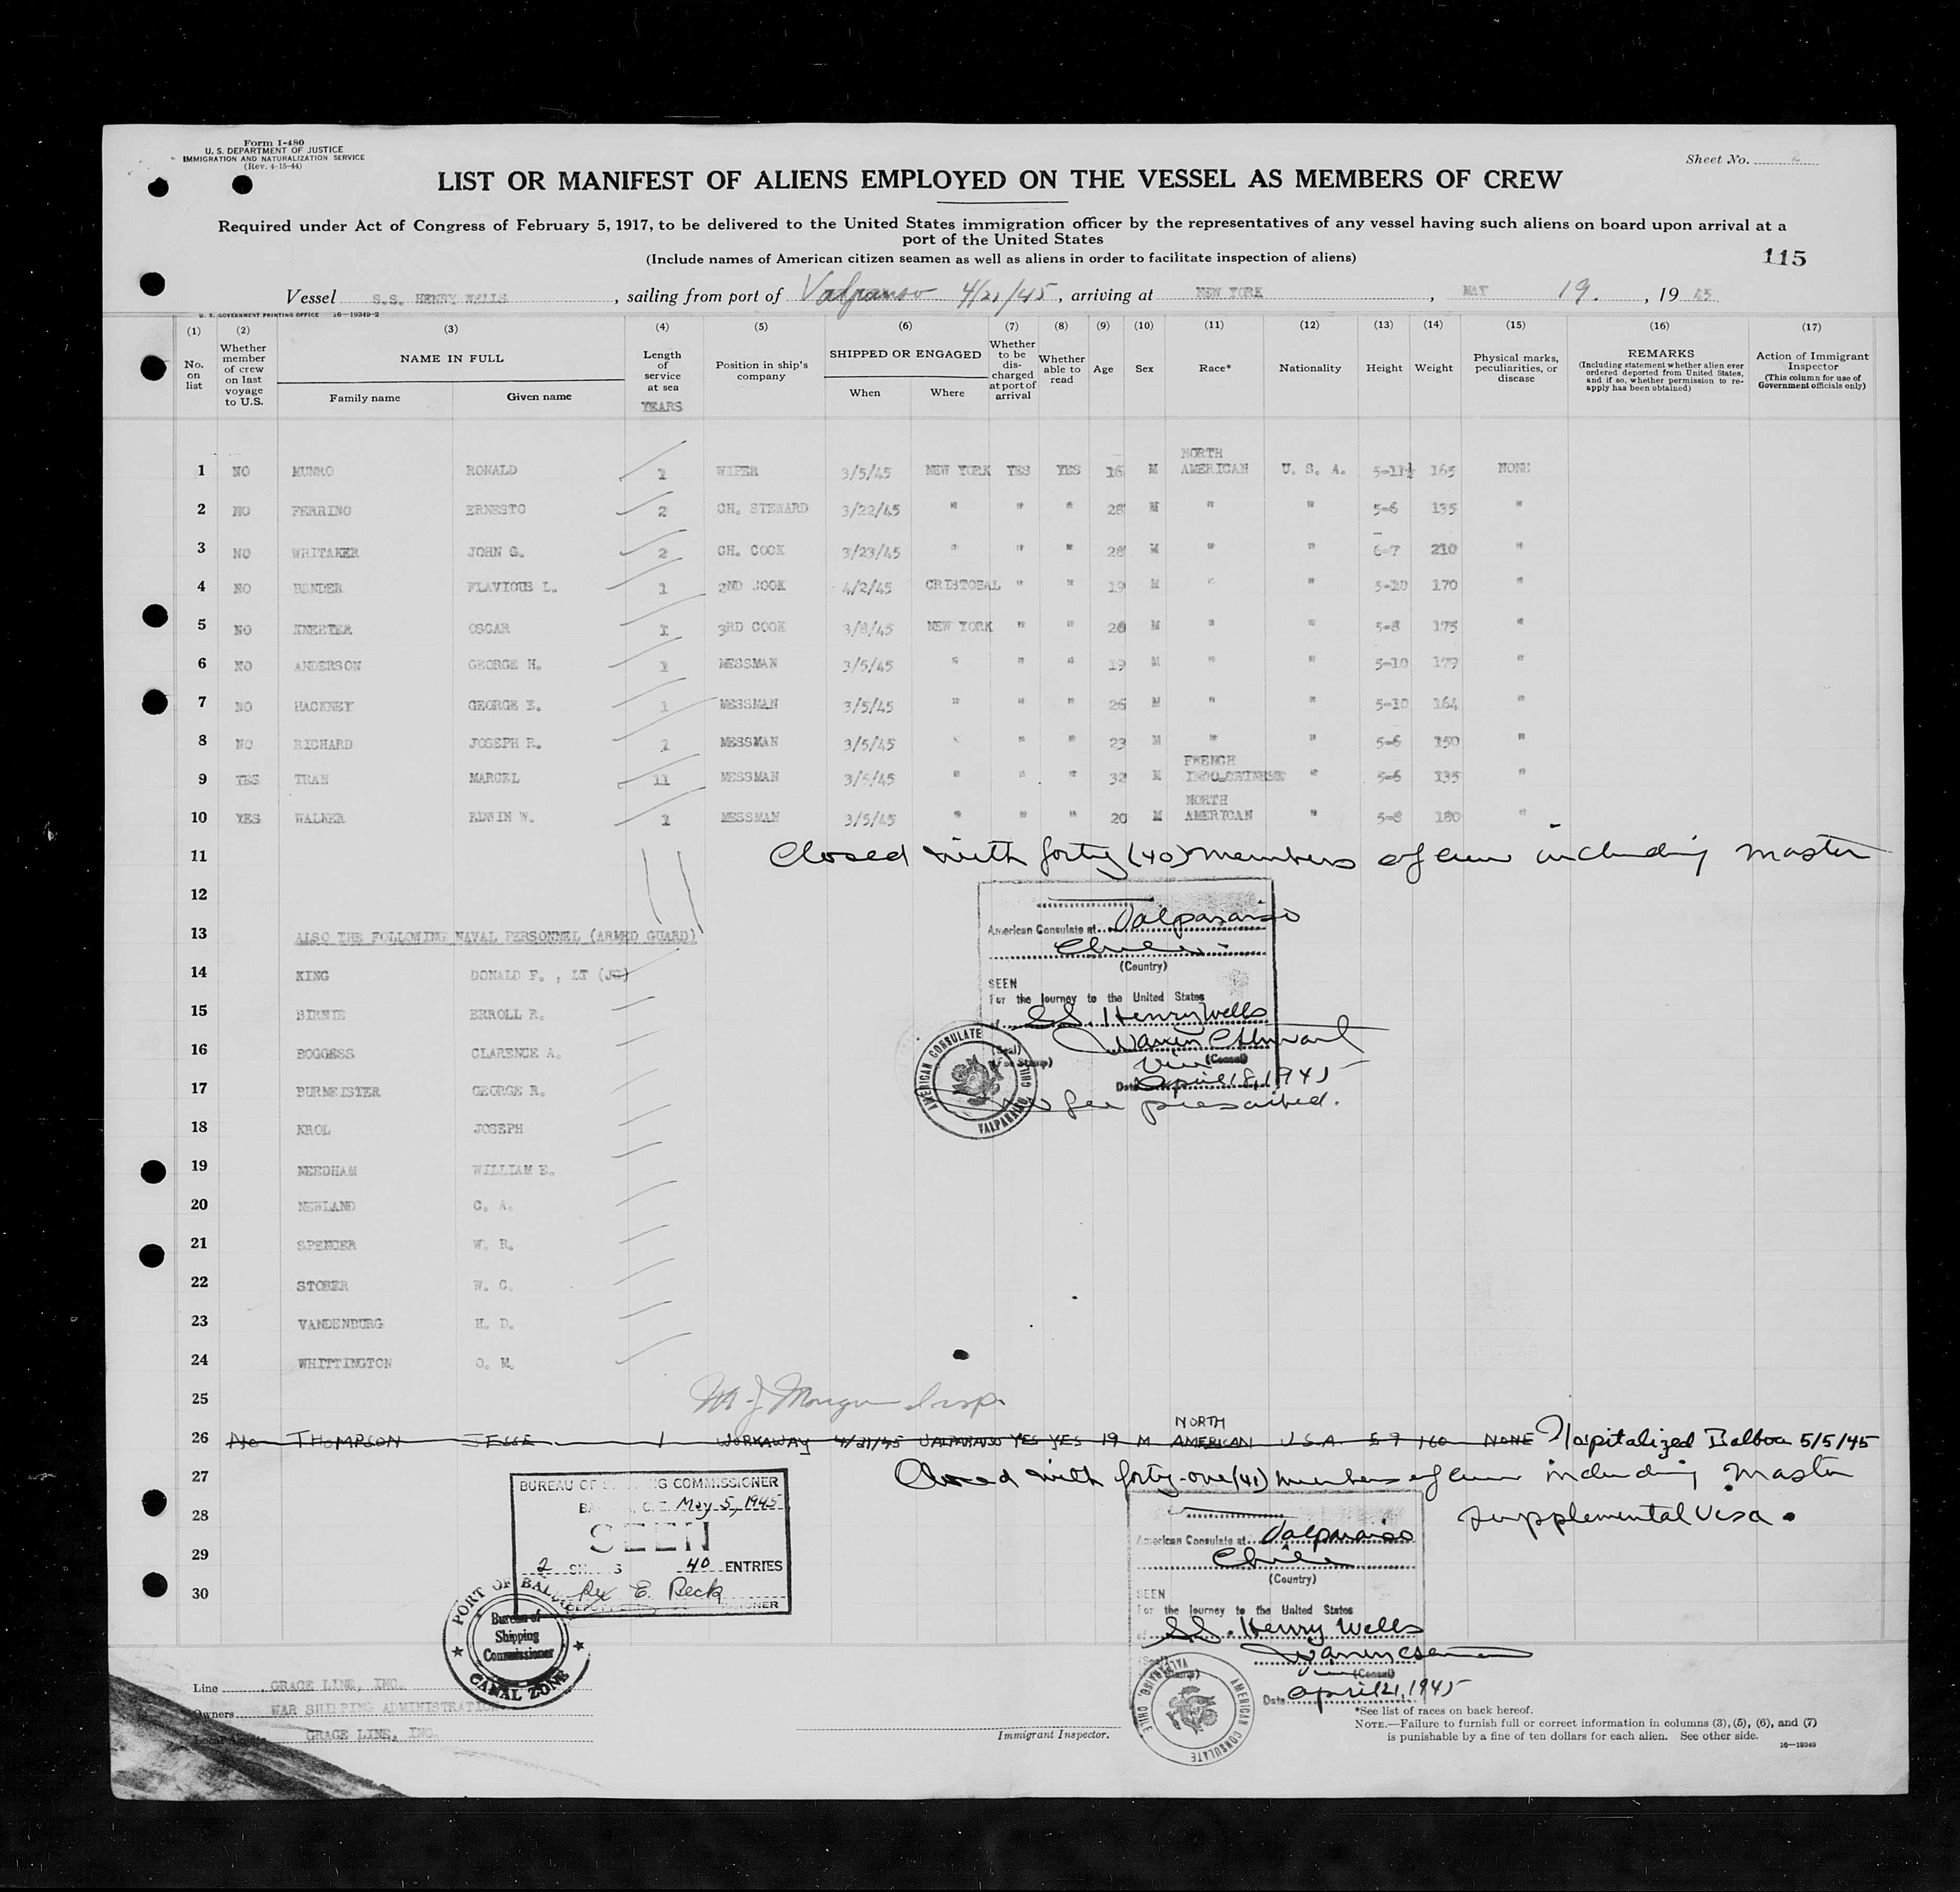 Form I-480
U. S. DEPARTMENT OF JUSTICE
IMMIGRATION AND NATURALIZATION SERVICE
(Rev. 4-15-44)
Sheet No. 2
LIST OR MANIFEST OF ALIENS EMPLOYED ON THE VESSEL AS MEMBERS OF CREW
Required under Act of Congress of February 5, 1917, to be delivered to the United States immigration officer by the representatives of any vessel having such aliens on board upon arrival at a
port of the United States
(Include names of American citizen seamen as well as aliens in order to facilitate inspection of aliens)
115
Vessel S.S. HENRY WELLS, sailing from port of Valparaiso 4/21/45, arriving at NEW YORK, MAY 19., 19 45
U. S. GOVERNMENT PRINTING OFFICE 16-19349-2
(1) (2) (3) (4) (5) (6) (7) (8) (9) (10) (11) (12) (13) (14) (15) (16) (17)
No. on list
Whether member of crew on last voyage to U.S.
NAME IN FULL
Family name Given name
Length of service at sea
YEARS
Position in ship's company
SHIPPED OR ENGAGED
When Where
Whether to be discharged at port of arrival
Whether able to read
Age
Sex
Race*
Nationality
Height
Weight
Physical marks, peculiarities, or disease
REMARKS
(Including statement whether alien ever ordered deported from United States, and if so, whether permission to re-apply has been obtained)
Action of Immigrant Inspector
(This column for use of Government officials only)
1 NO MUNRO RONALD 1 WIPER 3/5/45 NEW YORK YES YES 16 M NORTH AMERICAN U. S. A. 5-11½ 165 NONE
2 NO FERRINO ERNESTO 2 CH. STEWARD 3/22/45 " " " 28 M " " 5-6 135 "
3 NO WHITAKER JOHN G. 2 CH. COOK 3/23/45 " " " 28 M " " 6-7 210 "
4 NO BENDER FLAVIOUS L. 1 2ND COOK 4/2/45 CRISTOBAL " " 19 M " " 5-10 170 "
5 NO KNEETER OSCAR 1 3RD COOK 3/8/45 NEW YORK " " 20 M " " 5-8 175 "
6 NO ANDERSON GEORGE H. 1 MESSMAN 3/5/45 " " " 19 M " " 5-10 179 "
7 NO HACKNEY GEORGE E. 1 MESSMAN 3/5/45 " " " 26 M " " 5-10 164 "
8 NO RICHARD JOSEPH R. 1 MESSMAN 3/5/45 " " " 23 M " " 5-6 150 "
9 YES TRAN MARCEL 11 MESSMAN 3/5/45 " " " 32 M FRENCH INDO-CHINESE " 5-6 135 "
10 YES WALKER EDWIN W. 1 MESSMAN 3/5/45 " " " 20 M NORTH AMERICAN " 5-8 180 "
11 Closed with forty (40) members of crew including master
12
13 ALSO THE FOLLOWING NAVAL PERSONNEL (ARMED GUARD)
14 KING DONALD F., LT (JG)
15 BIRNIE ERROLL R.
16 BOGGESS CLARENCE A.
17 BURMEISTER GEORGE R.
18 KROL JOSEPH
19 NEEDHAM WILLIAM E.
20 NEWLAND C. A.
21 SPENCER W. R.
22 STOBER W. C.
23 VANDENBURG H. D.
24 WHITTINGTON O. M.
25
American Consulate at Valparaiso
Chile
(Country)
SEEN
For the journey to the United States
of S.S. Henry Wells
Warren C Stewart
Vice (Consul)
(Seal)
(Fee Stamp)
Date April 18, 1945
No fee prescribed.
AMERICAN CONSULATE
VALPARAISO, CHILE
M J Morgan Insp.
26 No THOMPSON JESSE 1 WORKAWAY 4/21/45 VALPARAISO YES YES 19 M NORTH AMERICAN U.S.A. 5 7 160 NONE Hospitalized Balboa 5/5/45
27 Closed with forty-one (41) members of crew including Master
28 supplemental visa.
29
30
BUREAU OF SHIPPING COMMISSIONER
May 5, 1945
SEEN
2 SHEETS 40 ENTRIES
Rex E. Beck
PORT OF BALBOA
Bureau of
Shipping
Commissioner
CANAL ZONE
American Consulate at Valparaiso
Chile
(Country)
SEEN
For the journey to the United States
of S.S. Henry Wells
Vice (Consul)
Date April 21, 1945
AMERICAN CONSULATE
VALPARAISO, CHILE
Line GRACE LINE, INC.
Owners WAR SHIPPING ADMINISTRATION
Local Agents GRACE LINE, INC.
Immigrant Inspector.
*See list of races on back hereof.
NOTE.—Failure to furnish full or correct information in columns (3), (5), (6), and (7)
is punishable by a fine of ten dollars for each alien. See other side.
16-19349